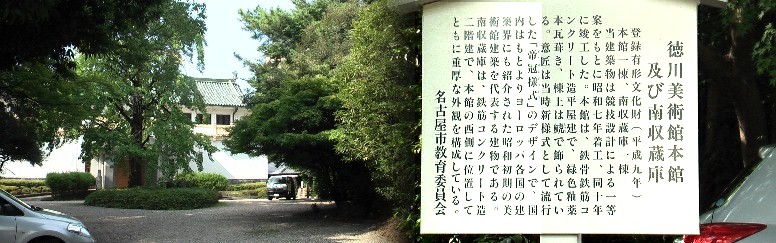 徳川美術館本館
及び南収蔵庫
登録有形文化財(平成九年)
本館一棟、南収蔵庫一棟
当建築物は競技設計による一等
案をもとに昭和七年着工、同十年
に竣工した。本館は、鉄骨鉄筋コ
ンクリート造平屋建で、緑色釉薬
本瓦葺き、棟上は鯱で飾られてい
る。意匠は当時新様式として流行
した「帝冠様式」のデザインで、国
内はもとよりヨーロッパ各国の建
築界にも紹介された昭和初期の美
術館建築を代表する建物である。
南収蔵庫は、鉄筋コンクリート造
二階建で、本館の西側に位置して
ともに重厚な外観を構成している。
名古屋市教育委員会